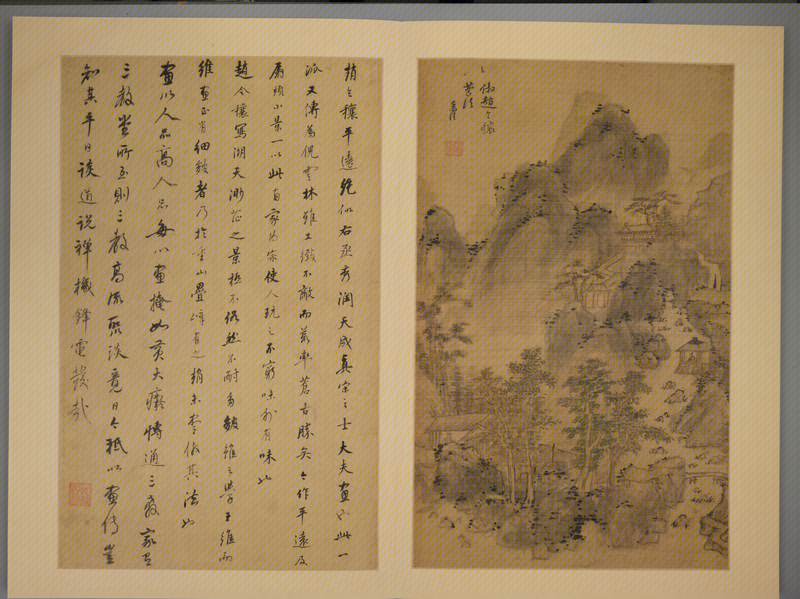 趙令穰平遠絕似右丞秀潤天成真宋之士大夫畫也此一
派又傳為倪雲林雖工緻不敵而荒率蒼古勝矣今作平遠及
扇頭小景一以此兩家為宗使人玩之不窮味外有味也
趙令穰寫湖天渺茫之景極不俗然不耐多皴雖云學王維而
維畫正有細皴者乃於重山疊嶂有之趙未 其法也
畫以人品高人品每以畫掩如黃大癡博通三教家
三教堂所至則三教高流聚談竟日今秖以畫傳豈
知其平日談道說禪機鋒電發哉
倣趙令穰
筆法